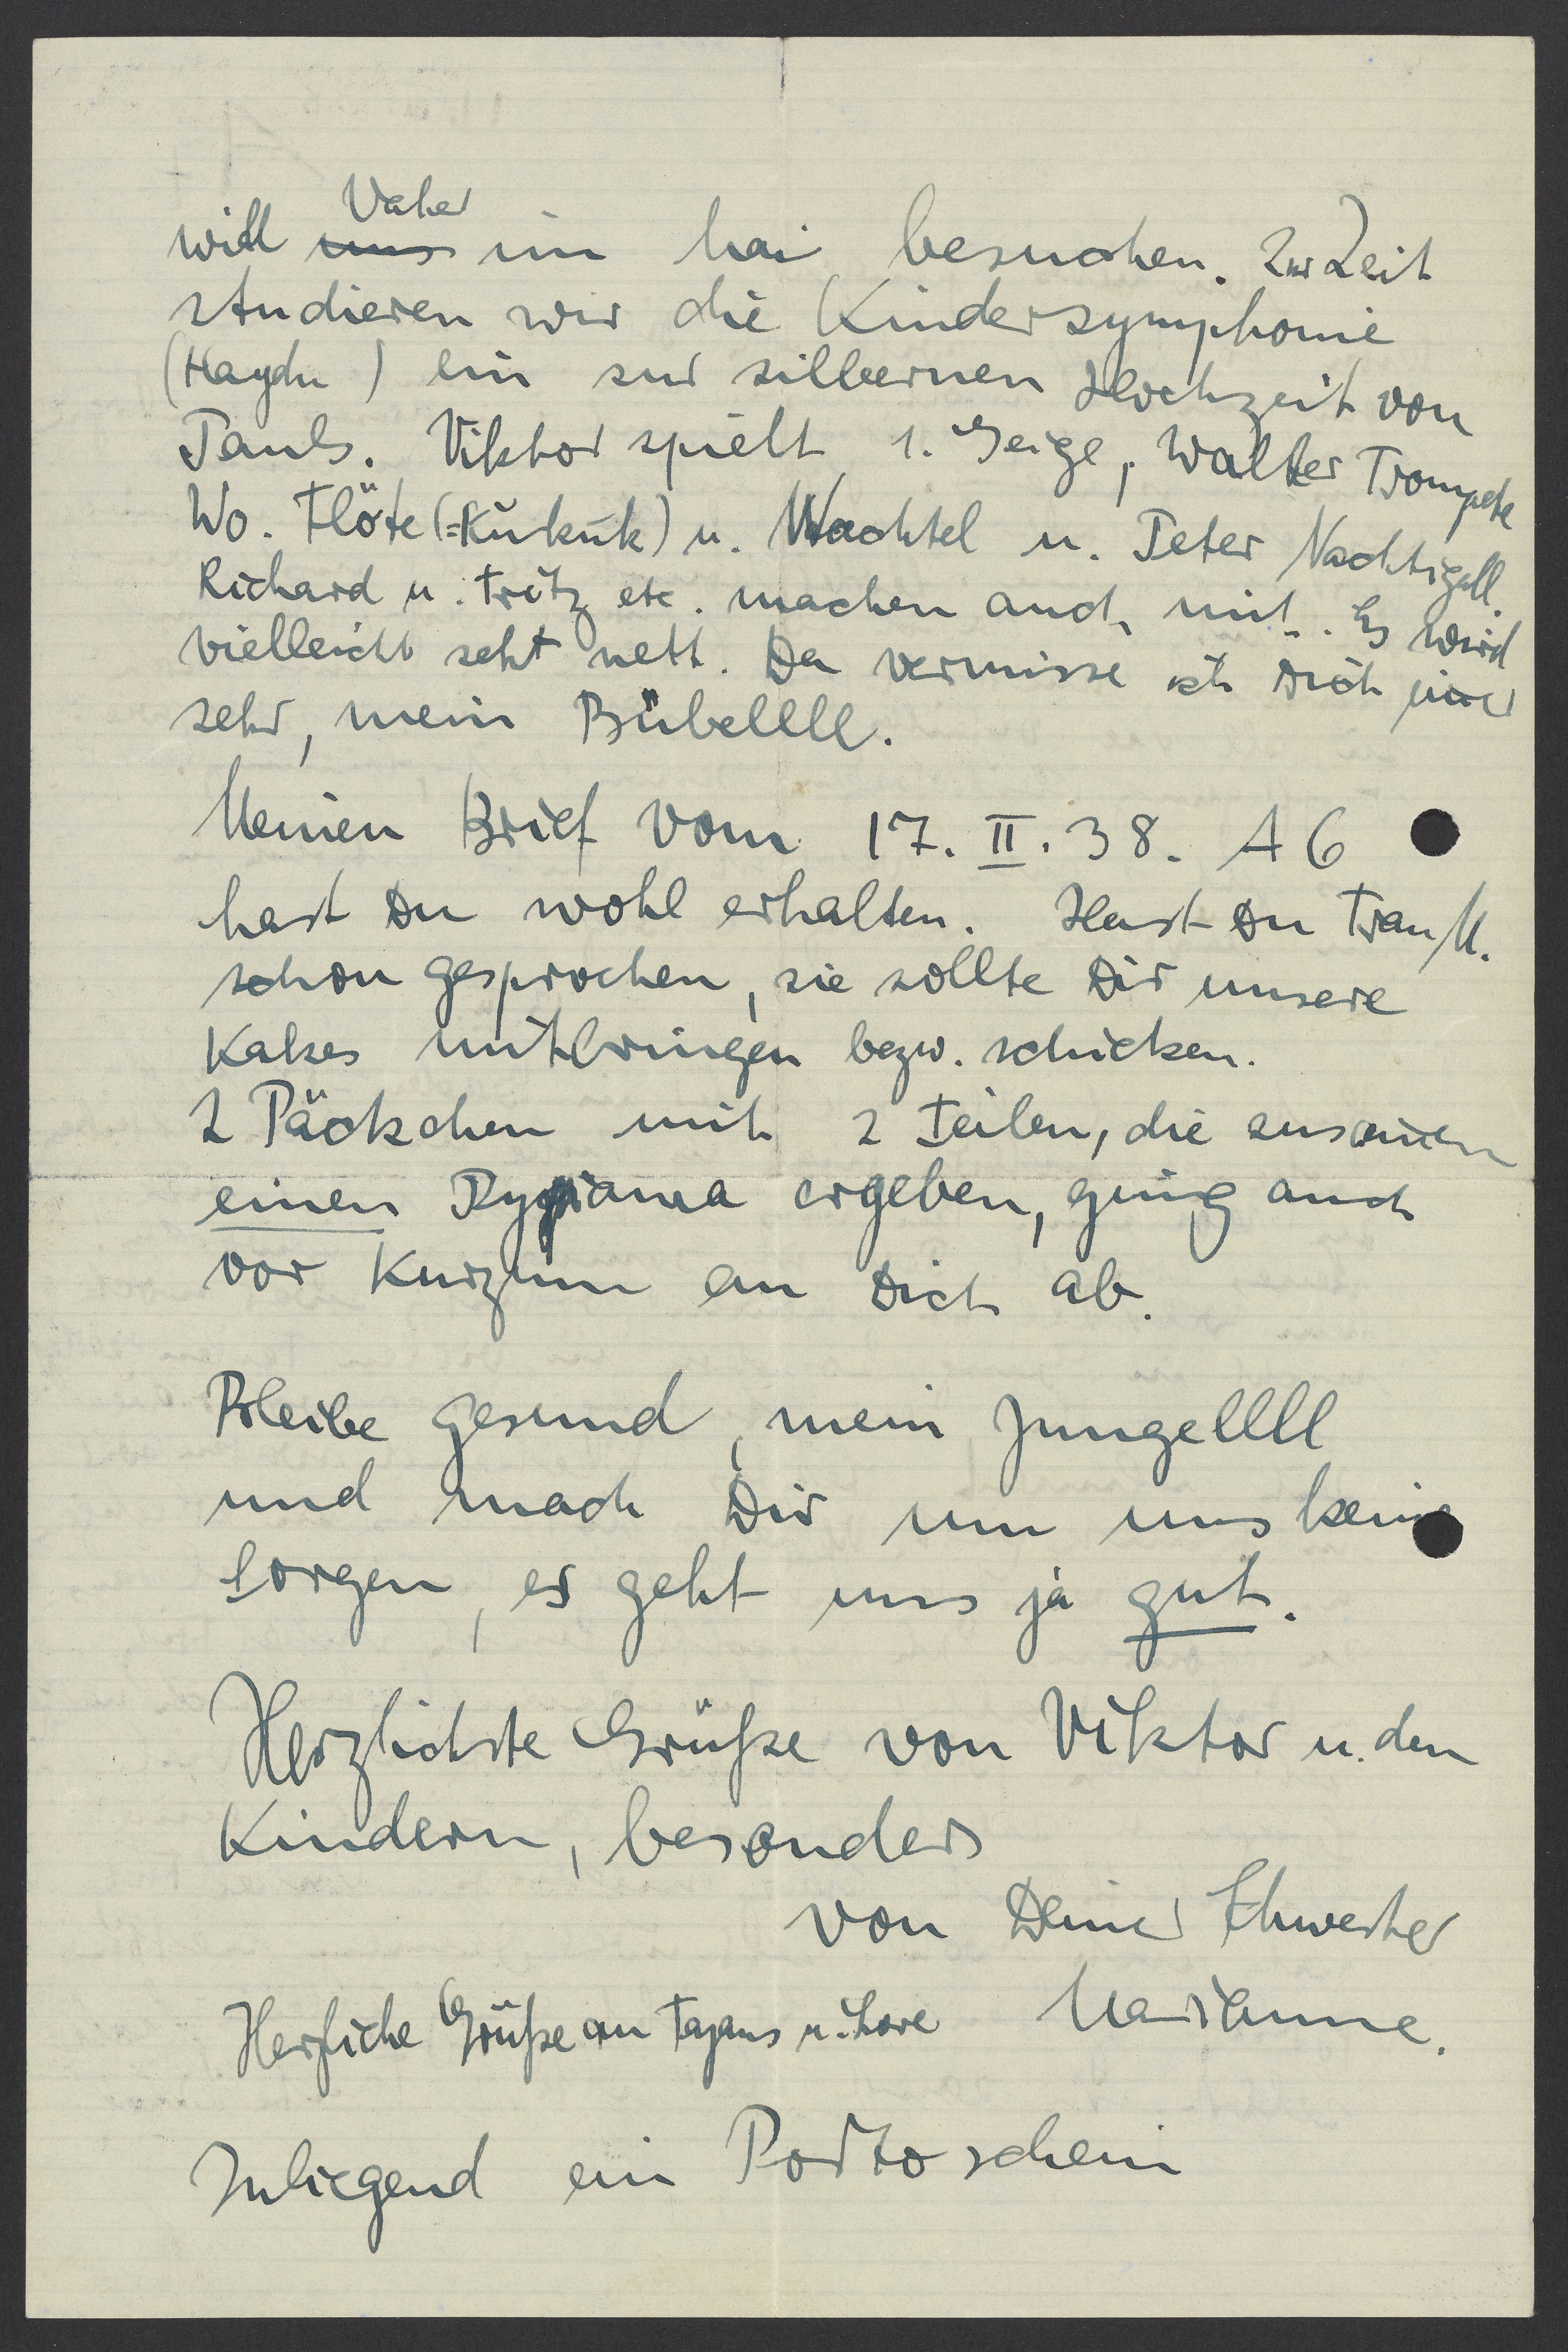 Vater
will uns im Mai besuchen. Zur Zeit
studieren wir die Kindersymphonie
(Haydn) ein zur silbernen Hochzeit von
Pauls. Viktor spielt 1. Geige, Walter Trompete
Wo. Flöte (=Kukuk) u. Wachtel u. Peter Nachtigall.
Richard u. Fritz etc. machen auch mit. Es wird
vielleicht sehr nett. Da vermisse ich Dich
sehr, mein Bübellll.
Meinen Brief vom 17. II. 38. A6
hast Du wohl erhalten. Hast Du Frau M.
schon gesprochen, sie sollte Dir unsere
Kakes mitbringen bezw. schicken.
2 Päckchen mit 2 Teilen, die zusammen
einen Pyjiama ergeben, ging auch
vor Kurzum an Dich ab.
Bleibe gesund, mein Jungellll
und mach Dir um uns keine
Sorgen, es geht uns ja gut.
Herzlichste Grüße von Viktor u. den
Kindern, besonders
von Deiner Schwester
Marianne.
Herzliche Grüße an Tajans u. Lore
Inliegend ein Portoschein